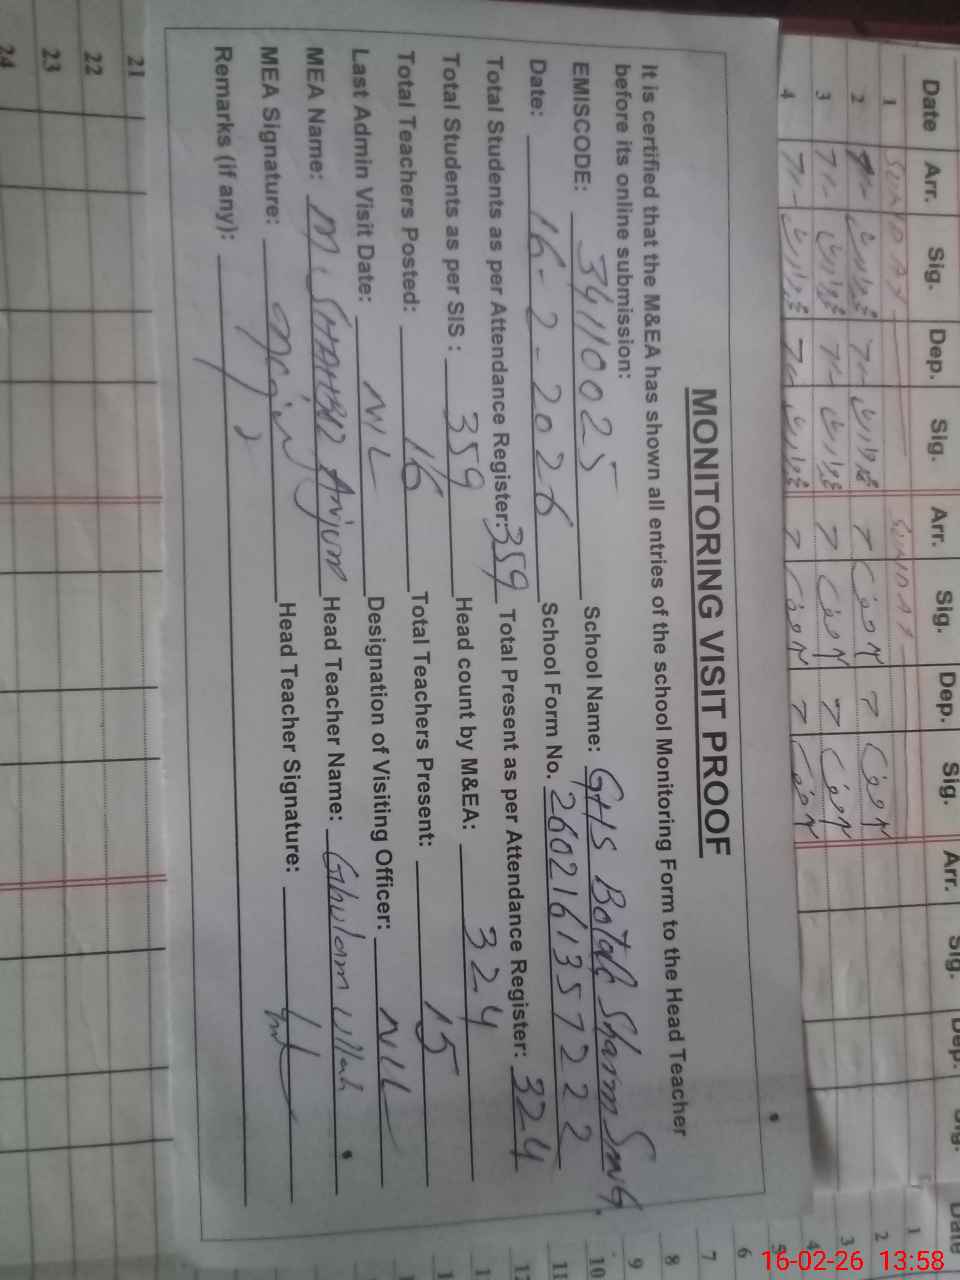 MONITORING VISIT PROOF
It is certified that the M&EA has shown all entries of the school Monitoring Form to the Head Teacher
before its online submission:
EMISCODE: 34110025 School Name: GHS Botah Sham Sing.
Date: 16-2-2026 School Form No. 2602161357222
Total Students as per Attendance Register: 359 Total Present as per Attendance Register: 324
Total Students as per SIS : 359 Head count by M&EA: 324
Total Teachers Posted: 16 Total Teachers Present: 15
Last Admin Visit Date: NIL Designation of Visiting Officer: NIL
MEA Name: M. Anjum Head Teacher Name: Ghulam Ullah
MEA Signature: Head Teacher Signature:
Remarks (if any):
Date Arr. Sig. Dep. Sig. Arr. Sig. Dep. Sig. Arr. Sig. Dep. Sig.
1 SUNDAY SUNDAY
2
3
4
21
22
23
24
Date
1
2
3
4
5
6
7
8
9
10
11
12
16-02-26 13:58